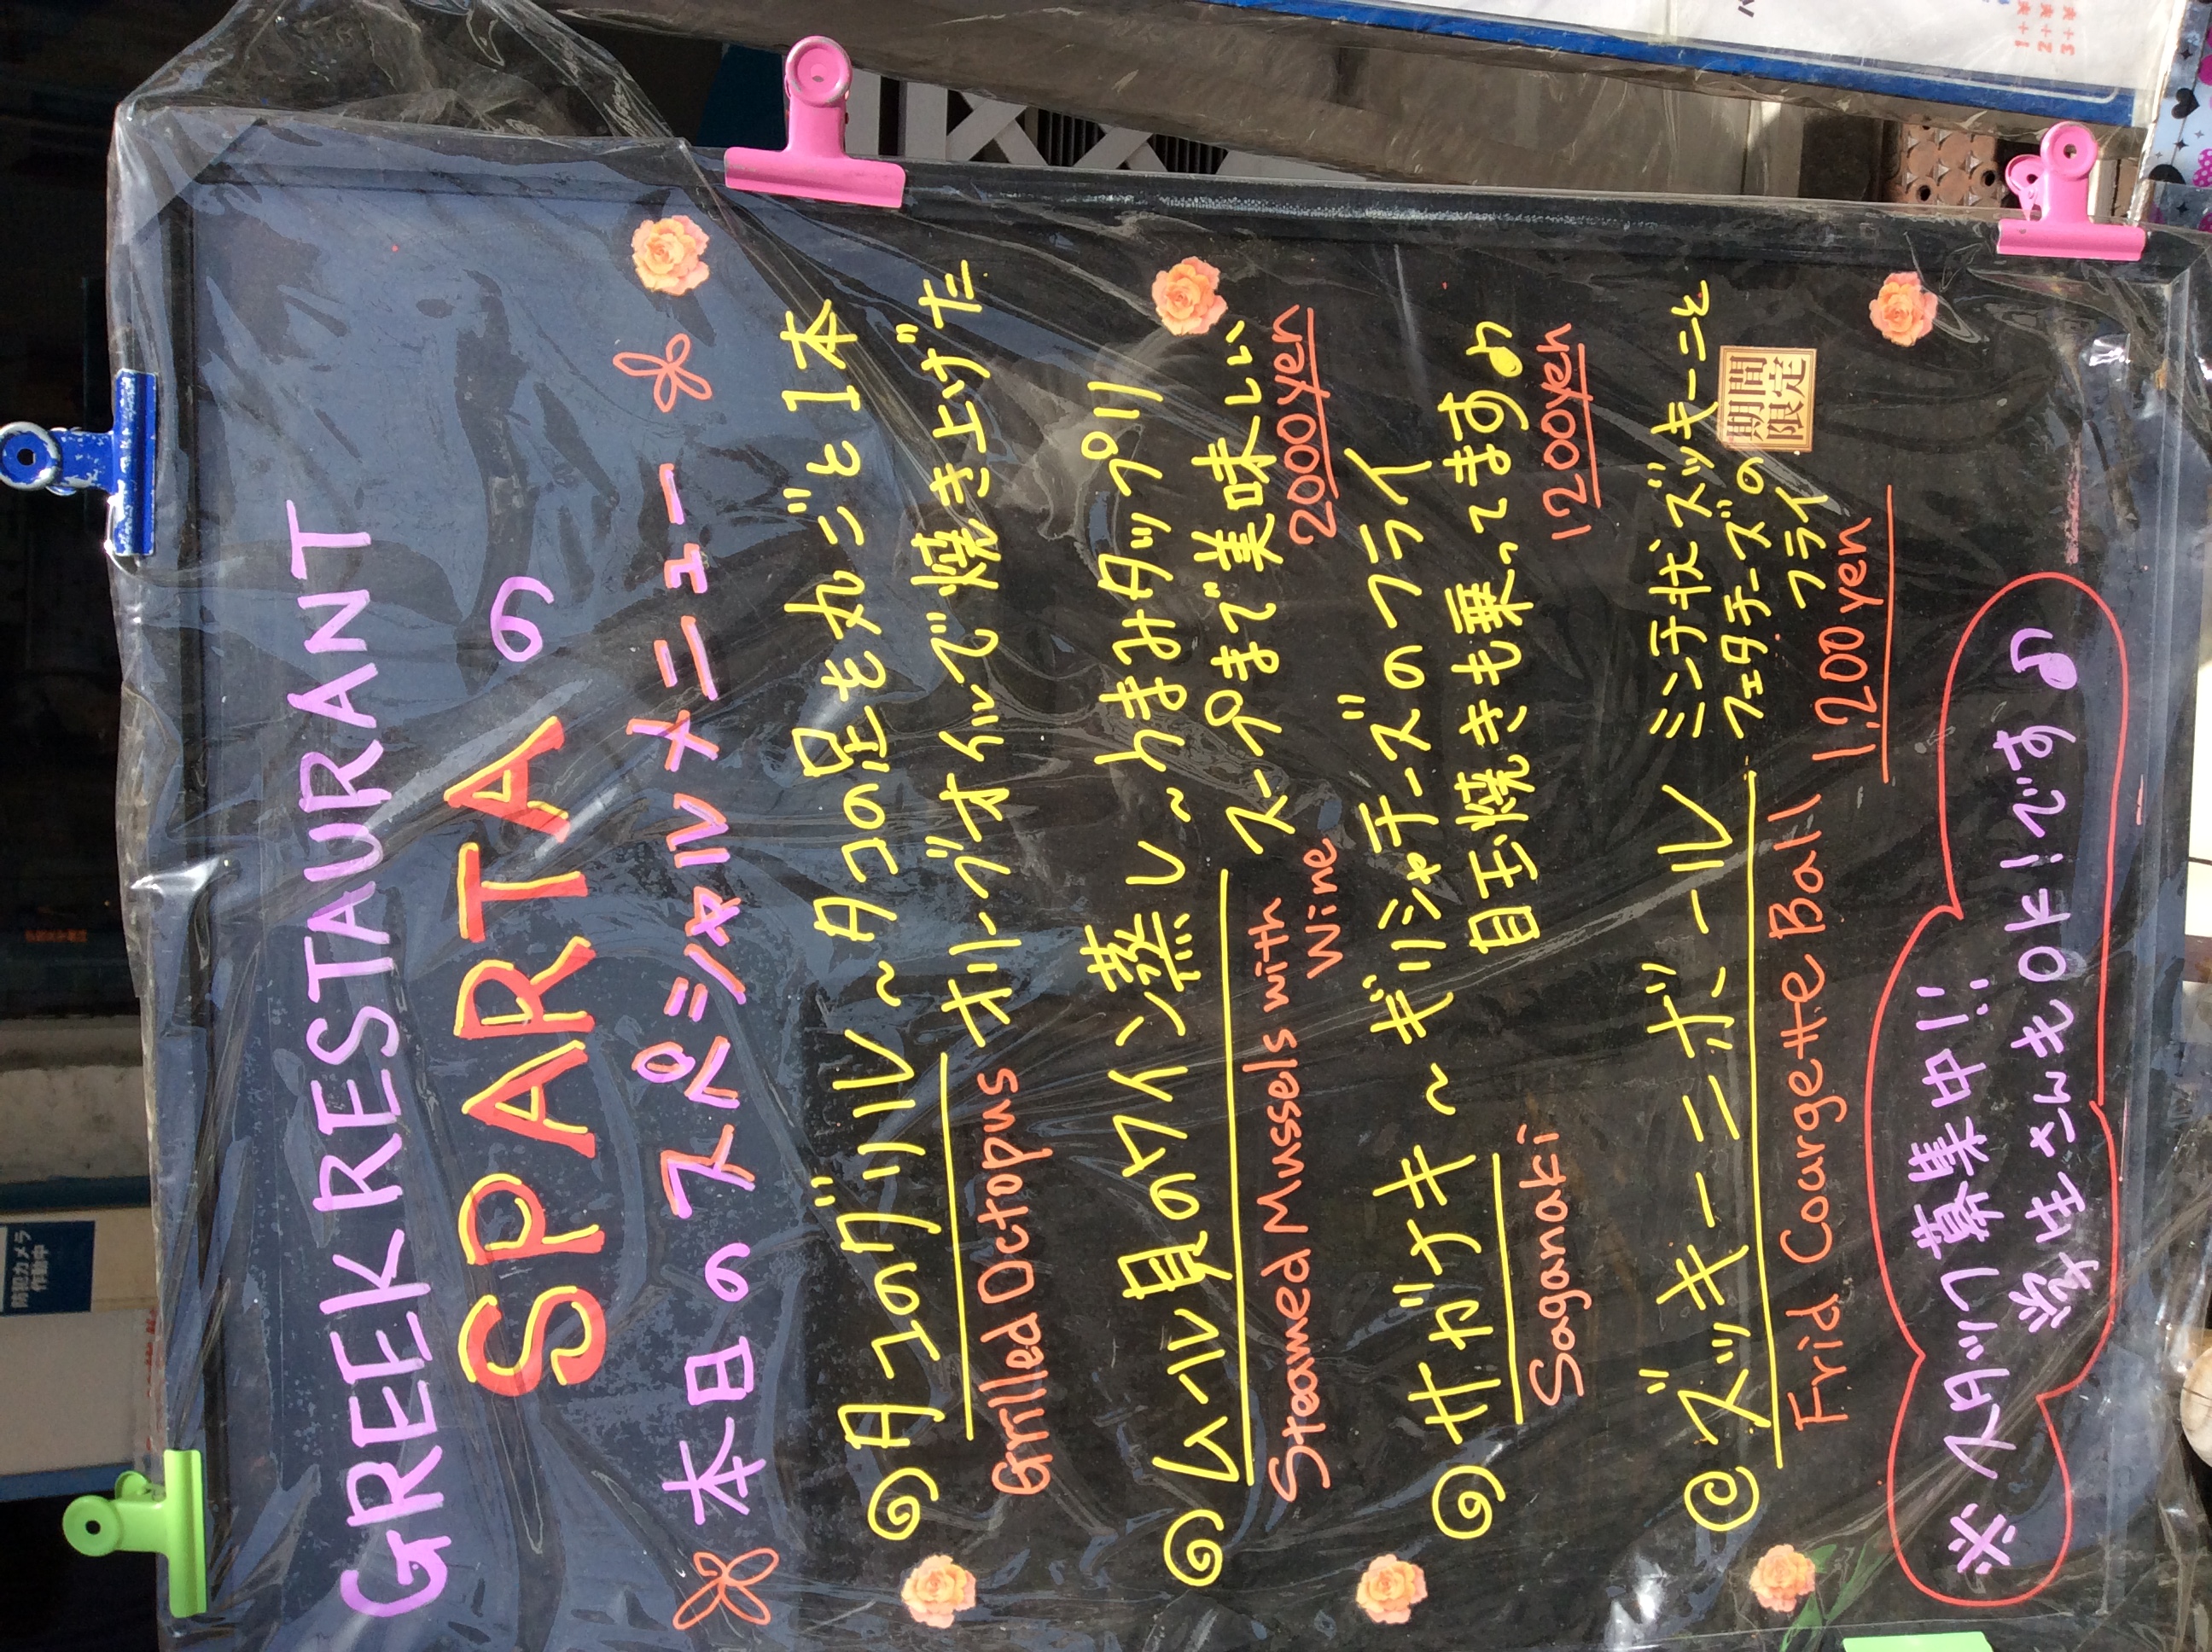 GREEK RESTAURANT
SPARTA の
本日の スペシャル メニュー
タコのグリル ~ タコの足を丸ごと1本
オリーブオイルで焼き上げた
Grilled Octopus
ムール貝のワイン蒸し ~ うまみタップリ
スープまで美味しい
Steamed Mussels with
Wine
2000yen
サガナキ ~ ギリシャチーズのフライ
目玉焼きも乗ってます♪
Saganaki
1200yen
ズッキーニボール
ミンチ状ズッキーニと
フェタチーズの
フライ
期間
限定
Frid Courgette Ball
1,200yen
※ スタッフ募集中!!
学生さんもOK!です♪
防犯カメラ
作動中